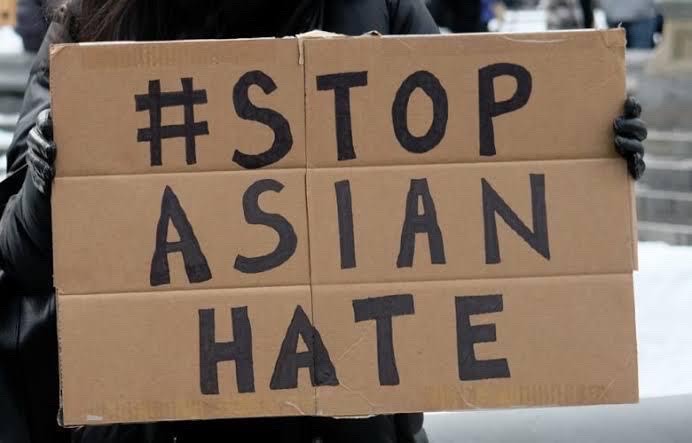 #STOP
ASIAN
HATE